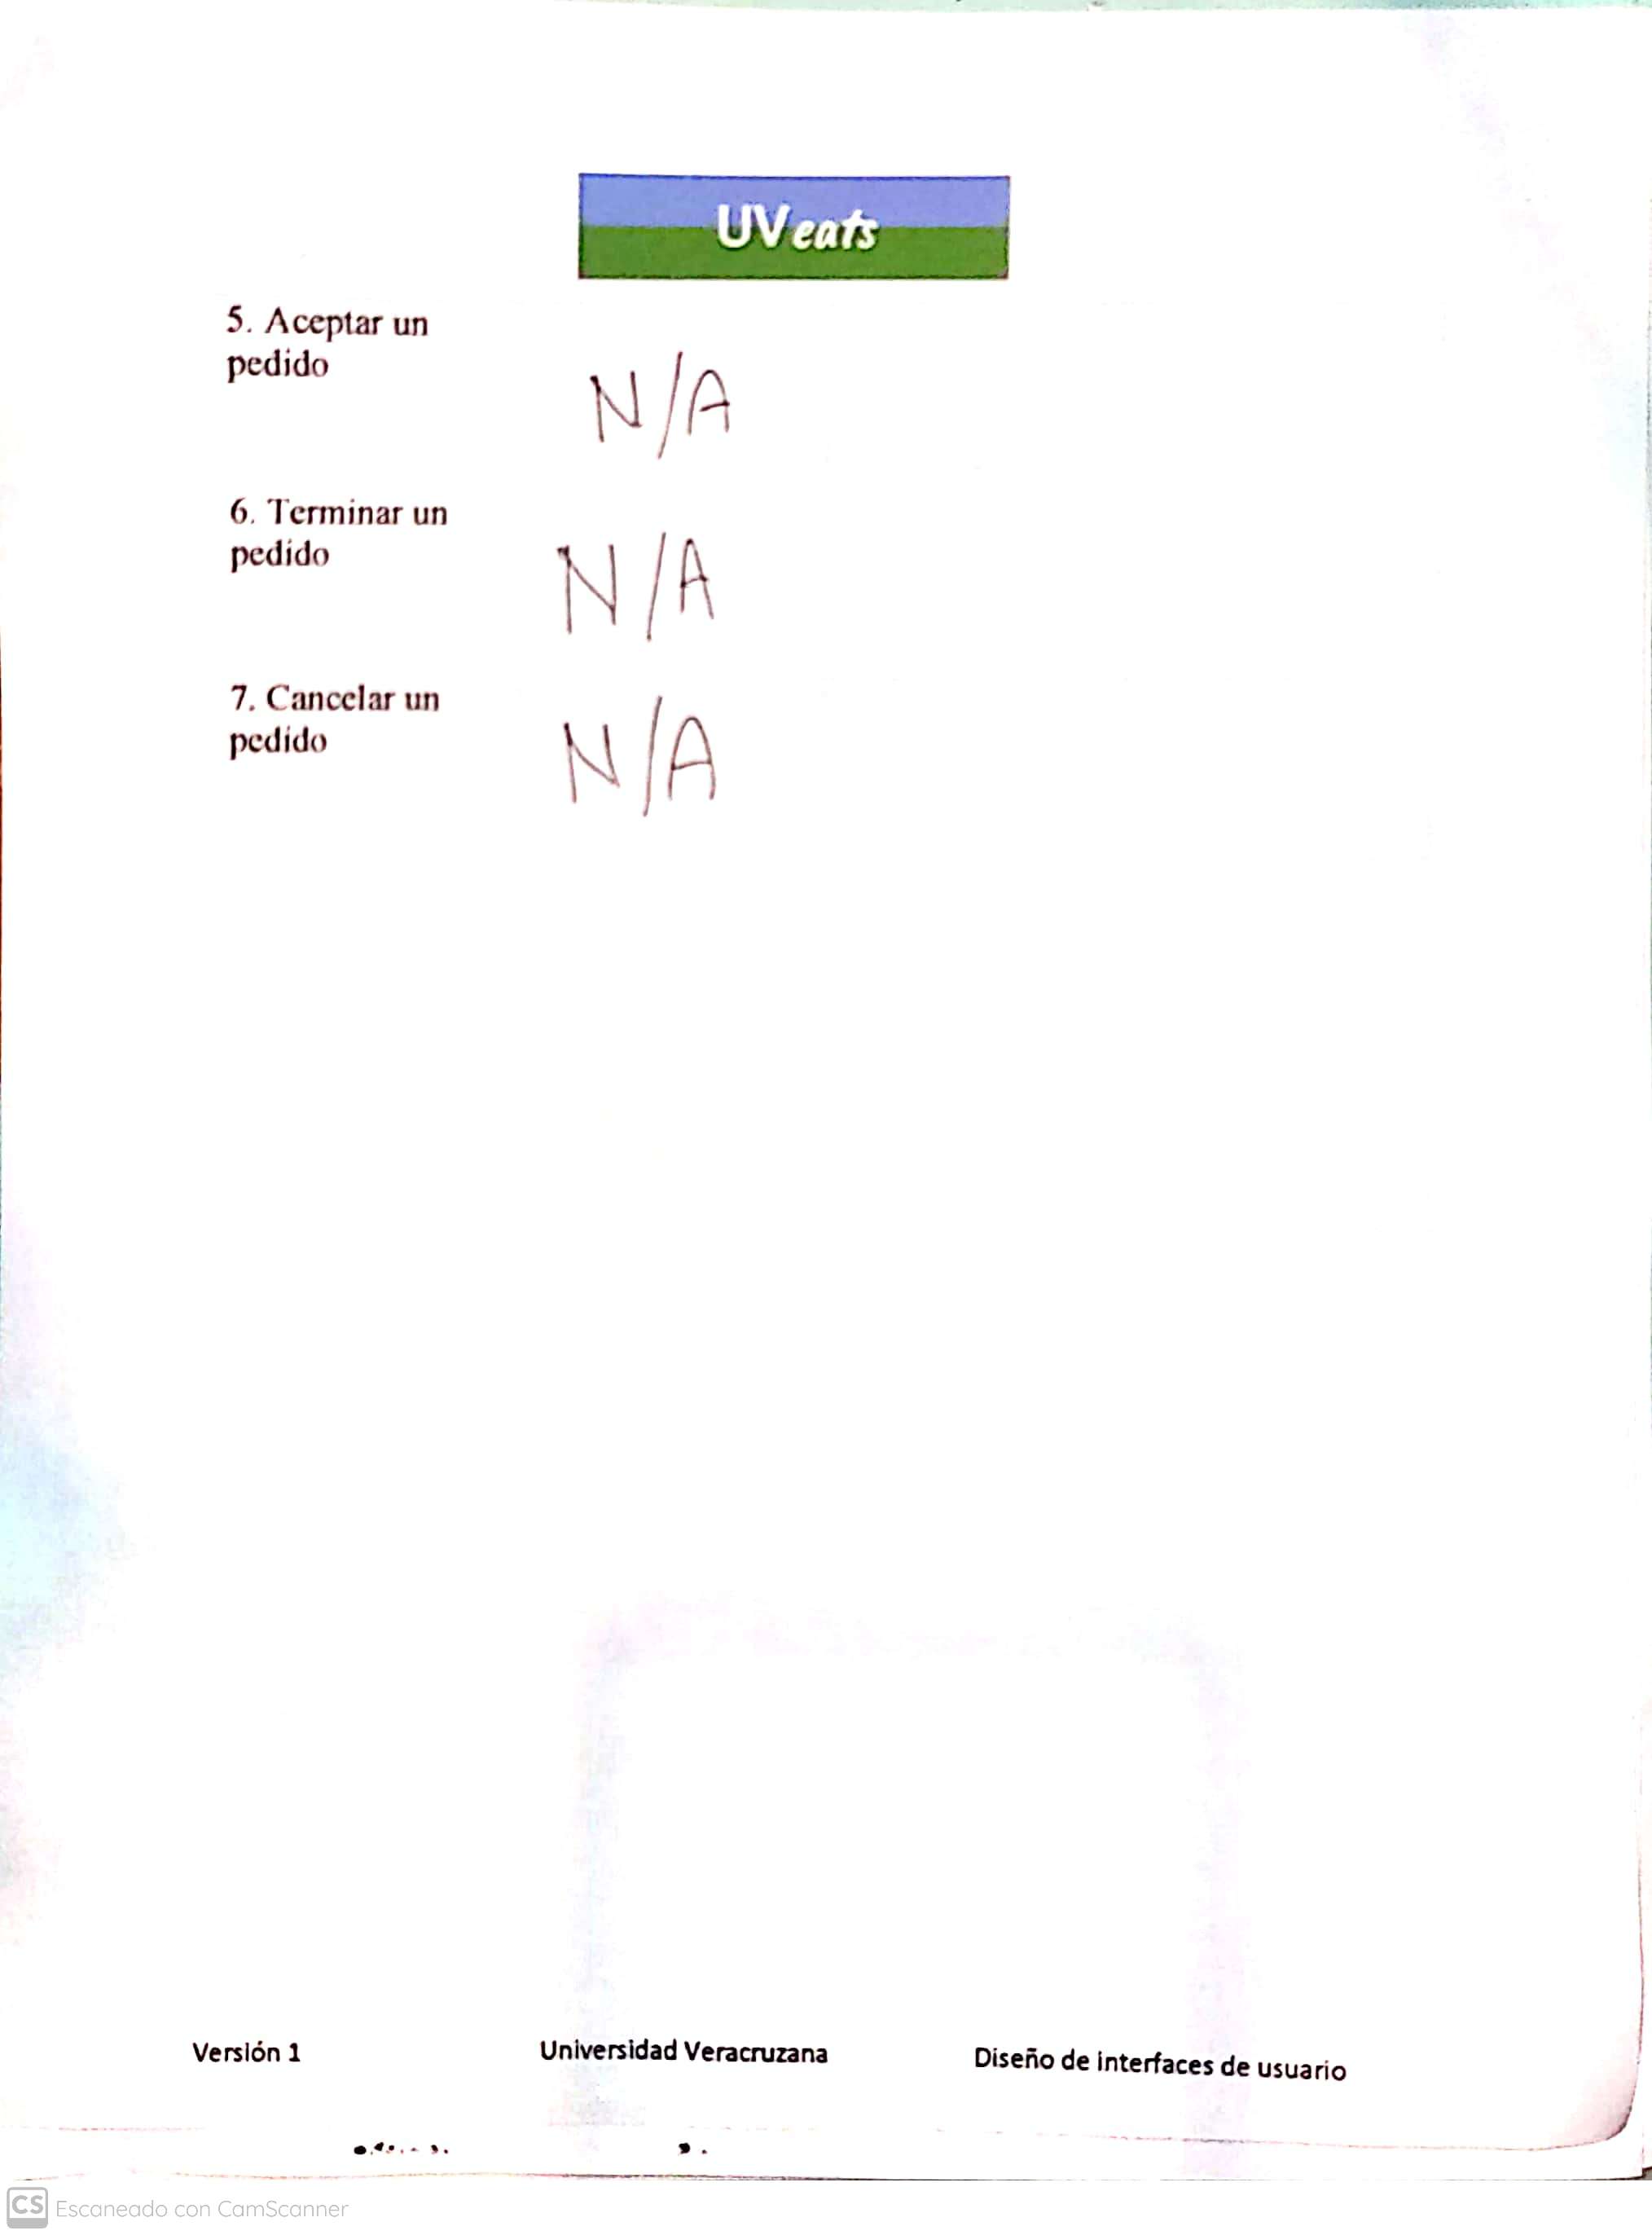 UVeats
5. Aceptar un
pedido
N/A
6. Terminar un
pedido
N/A
7. Cancelar un
pedido
N/A
Versión 1 Universidad Veracruzana Diseño de interfaces de usuario
CS Escaneado con CamScanner